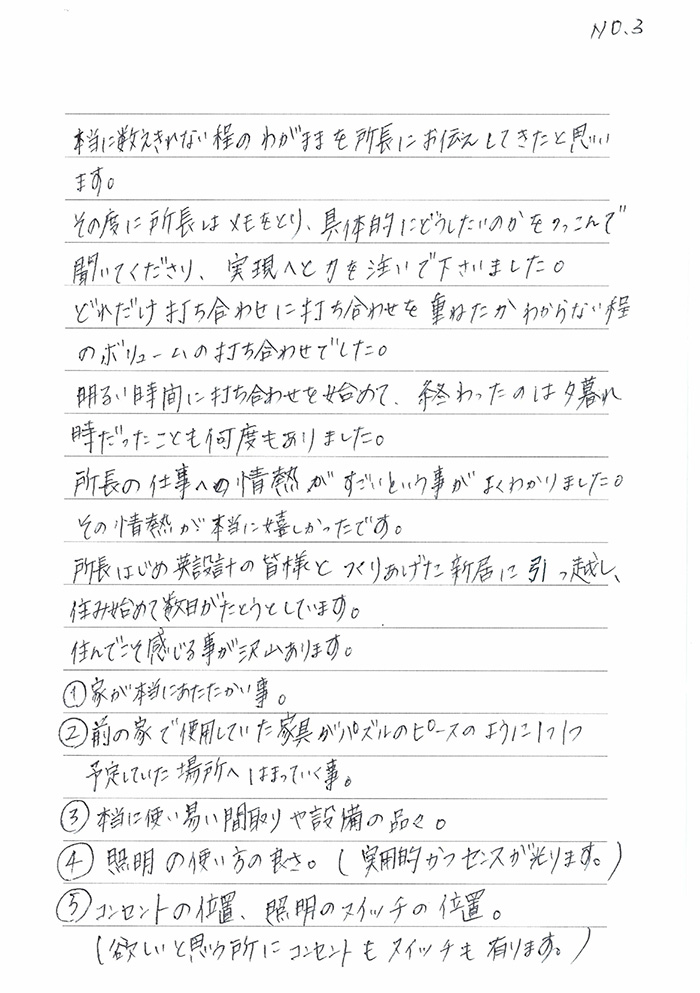 NO.3
本当に数えきれない程のわがままを所長にお伝えしてきたと思い
ます。
その度に所長はメモをとり、具体的にどうしたいのかをつっこんで
聞いてくださり、実現へと力を注いで下さいました。
どれだけ打ち合わせに打ち合わせを重ねたかわからない程
のボリュームの打ち合わせでした。
明るい時間に打ち合わせを始めて、終わったのは夕暮れ
時だったことも何度もありました。
所長の仕事への情熱がすごいという事がよくわかりました。
その情熱が本当に嬉しかったです。
所長はじめ英設計の皆様とつくりあげた新居に引っ越し、
住み始めて数日がたとうとしています。
住んでこそ感じる事が沢山あります。
①家が本当にあたたかい事。
②前の家で使用していた家具がパズルのピースのように1つ1つ
予定していた場所へはまっていく事。
③本当に使い易い間取りや設備の品々。
④照明の使い方の良さ。(実用的かつセンスが光ります。)
⑤コンセントの位置、照明のスイッチの位置。
(欲しいと思う所にコンセントもスイッチも有ります。)